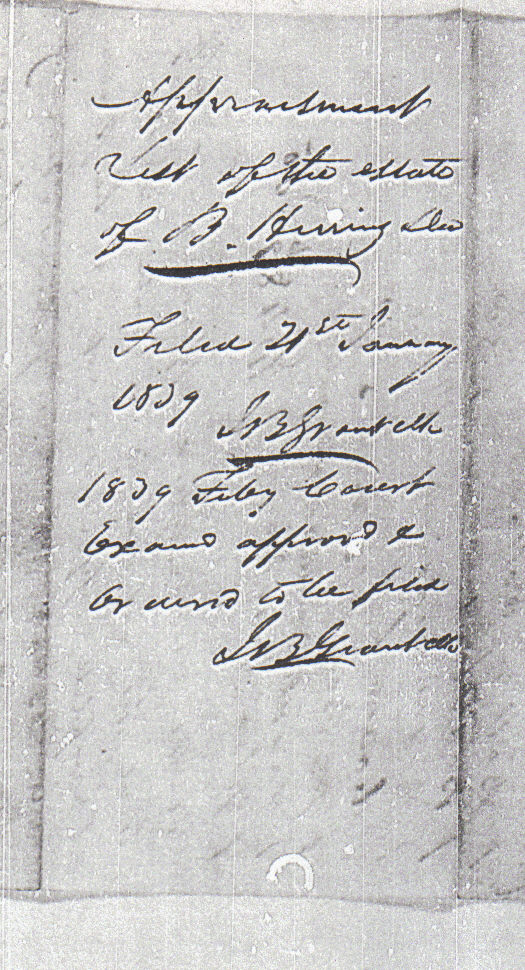 Appraisment
List of the estate
of B. Herring Dec
Filed 21st January
1839
J N B Grant clk
1839 Feby Court
Examd approvd &
Orderd to be filed
J N B Grant clk